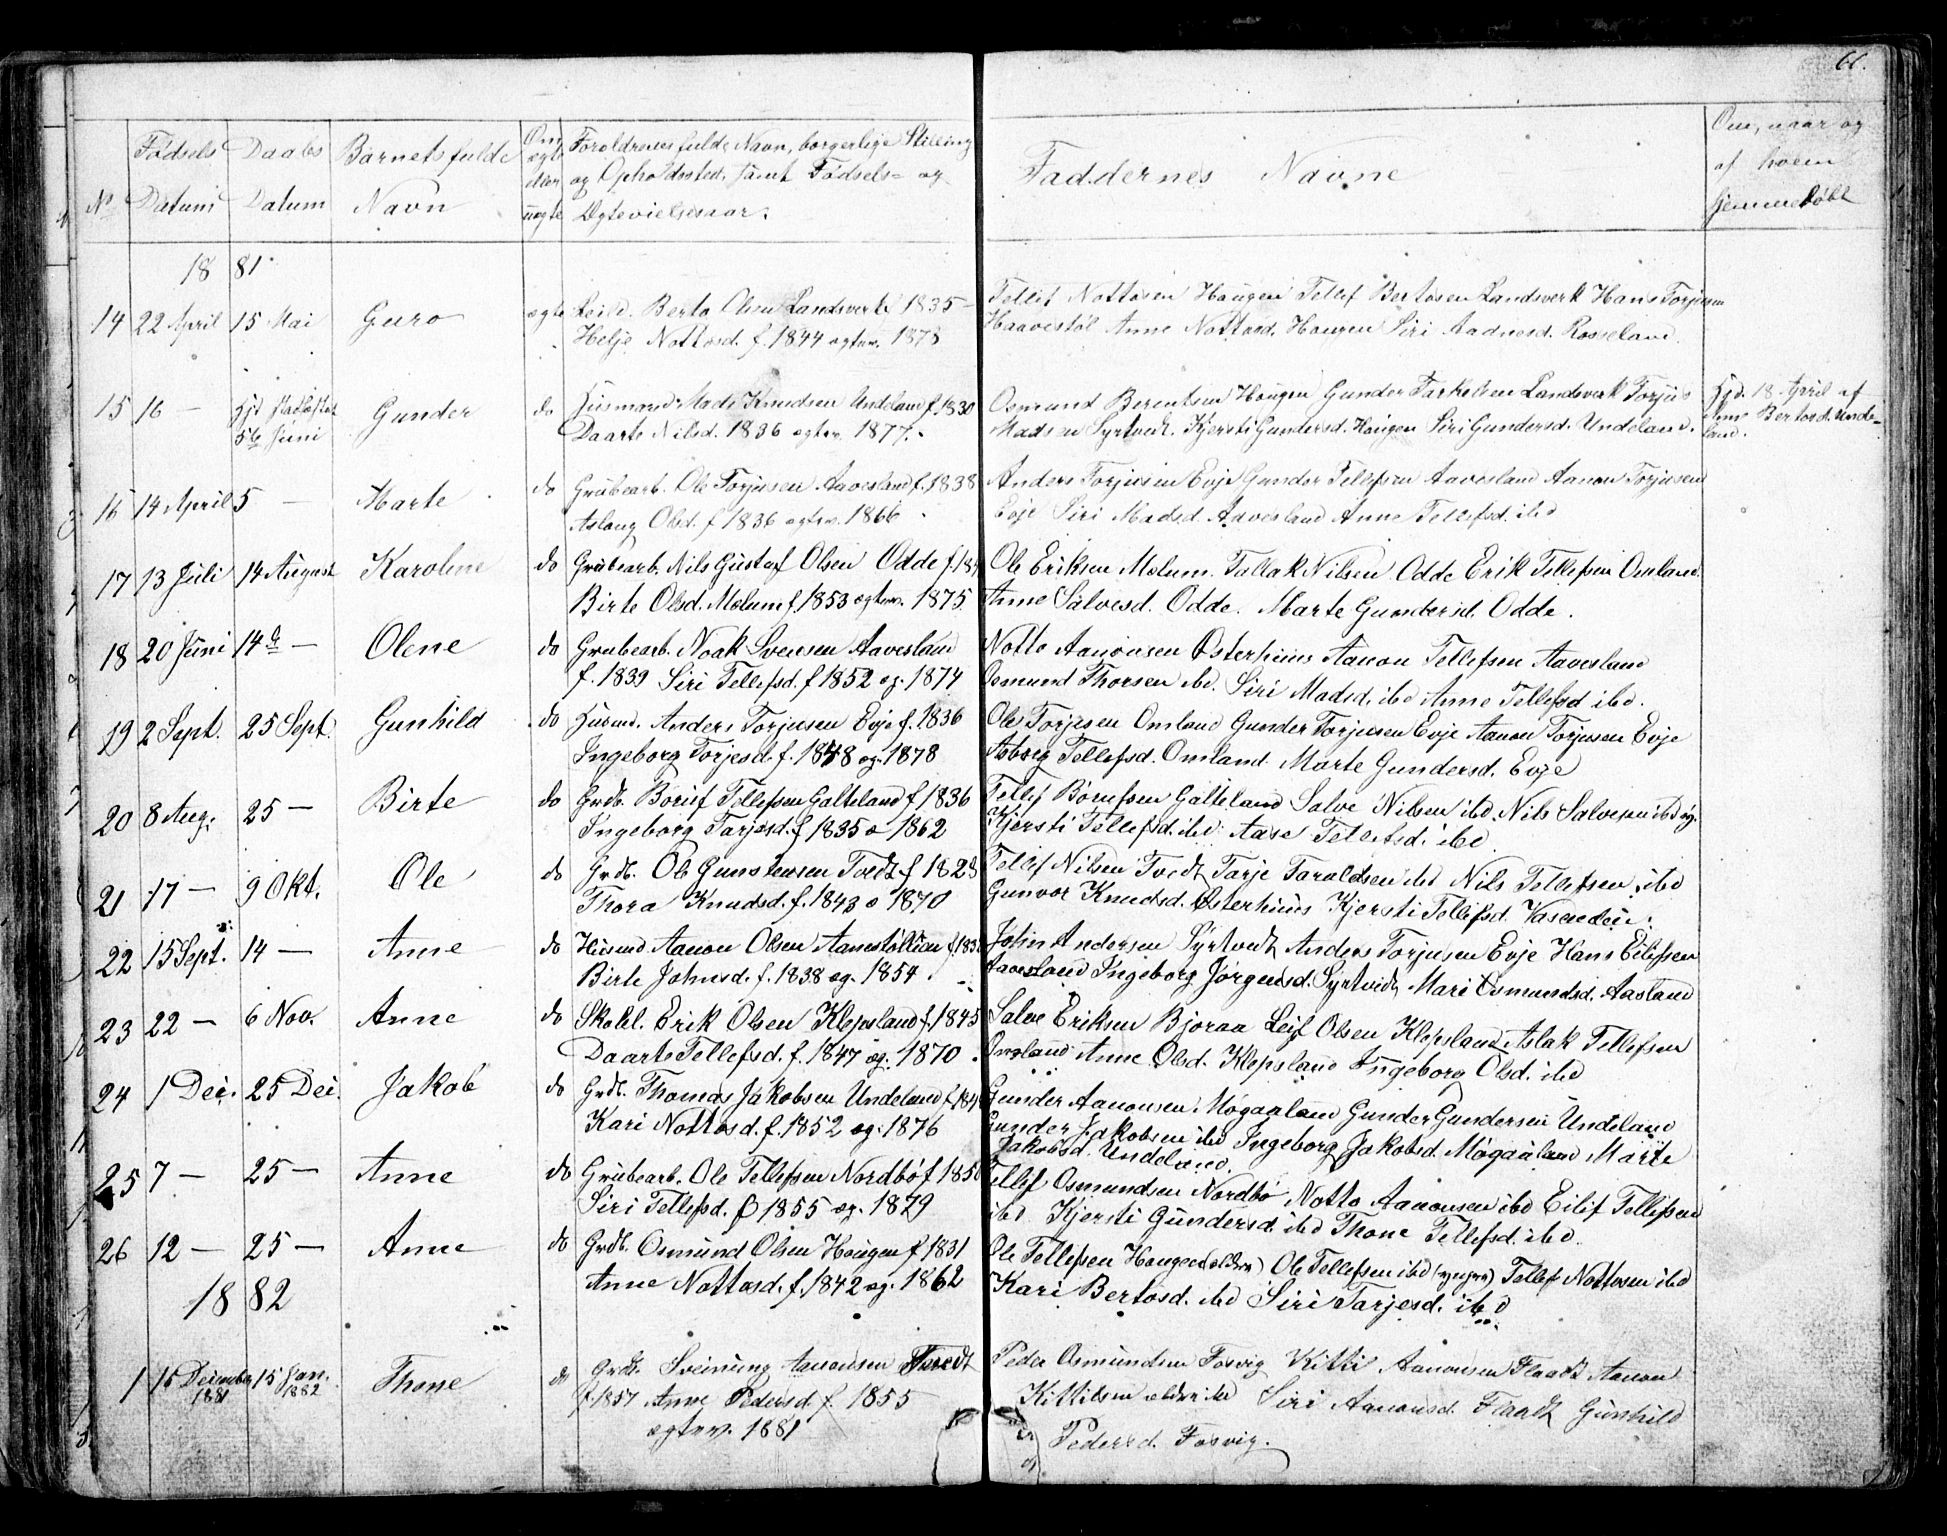 66.
No Fødsels Datum Daabs Datum Barnets fulde Navn Om ægte eller uægte Forældrenes fulde Navn, borgerlige Stilling og Opholdssted, samt Fødsels- og Ægtevielsesaar. Faddernes Navne Om, naar og af hvem hjemmedøbt
1881
14 22 April 15 Mai Guro ægte Leild. Berto Olsen Landsverk f 1835 – Tellef Nottosen Haugen Tellef Bertosen Landsverk Hans Torjusen
Helje Nottosd. f. 1844 ægtev. 1878 Haavestøl Anne Nottosd. Haugen Siri Aadnesd. Rosseland.
15 16 – Hjd stadfæstet 5te Juni Gunder do Husmand Mads Knudsen Undeland f. 1830 Osmund Berentsen Haugen Gunder Tarkelsen Landsverk Torjus Hjd. 18 April af
Daarte Nilsd. 1836 ægtev. 1877. Madsen Syrtvedt. Kjersti Gundersd. Haugen Siri Gundersd. Undeland. Anne Bertosd. Undeland.
16 14 April 5 – Marte do Grubearb. Ole Torjusen Aavesland f. 1838 Anders Torjusen Evje Gunder Tellefsen Aavesland Aanon Torjusen
Aslaug Olsd. f 1836 ægtev. 1866 Evje Siri Madsd. Aavesland Anne Tellefsd. ibd
17 13 Juli 14 August Karoline do Grubearb. Nils Gustaf Olsen Odde Ole Eriksen Mølum. Tallak Nilsen Odde Erik Tellefsen Omland.
Birte Olsd. Mølum f. 1853 ægtev. 1875. Anne Salvesd. Odde. Marte Gundersd. Odde.
18 20 Juni 14de – Olene do Grubearb. Noak Svensen Aavesland Notto Aanonsen Østerhuus Aanon Tellefsen Aavesland
f. 1839 Siri Tellefsd. f 1852 æg. 1874 Osmund Thorsen ibd. Siri Madsd. ibd Anne Tellefsd ibd.
19 2 Sept. 25 Sept. Gunhild do Husmd. Anders Torjusen Evje f. 1836 Ole Torjesen Omland Gunder Torjusen Evje Aanon Torjusen Evje
Ingeborg Torjesd. f. 1848 æg. 1878 Asborg Tellefsd. Omland Marte Gundersd. Evje
20 8 Aug. 25 – Birte do Grdb. Børuf Tellefsen Galteland f 1836 Tellef Børufsen Galteland Salve Nilsen ibd. Nils Salvesen ibd og.
Ingeborg Tarjesd. f 1835 æ 1862 Kjersti Tellefsd. ibd. Aase Tellefsd. ibd.
21 17 – 9 Okt. Ole do Grdb. Ole Gunstensen Tvedt f 1828 Tellef Nilsen Tvedt Tarje Taraldsen ibd Nils Tellefsen ibd
Thora Knudsd. f. 1843 æ 1870 Gunvor Knudsd. Østerhuus Kjersti Tellefsd. Vasenden.
22 15 Sept. 14 – Anne do Husmd Aanon Olsen John Andersen Syrtvedt Anders Torjusen Evje Hans Eilifsen
Birte Johnsd. f. 1838 æg. 1854. Aavesland Ingeborg Jørgensd. Syrtvedt Mari Osmundsd. Aasland
23 22 – 6 Nov. Anne do Skolel. Erik Olsen Klepsland f. 1845 Salve Eriksen Bjoraa Leif Olsen Klepsland Aslak Tellefsen
Daarte Tellefsd. f. 1847 æg. 1870. Omland Anne Olsd. Klepsland Ingeborg Olsd. ibd
24 1 Dec. 25 Dec. Jakob do Grdb. Thomas Jakobsen Undeland Gunder Aanonsen Møgaaland Gunder Gundersen Undeland
Kari Nottosd. f. 1852 æg. 1876 Gunder Jakobsen ibd Ingeborg Jakobsd. Møgaaland Marte
Jakobsd. Undeland.
25 7 – 25 – Anne do Grubearb. Ole Tellefsen Nordbø Tellef Osmundsen Nordbø Notto Aanonsen ibd Eilif Tellefsen
Siri Tellefsd. f 1855 æg. 1879 ibd Kjersti Gundersd. ibd Thone Tellefsd. ibd.
26 12 – 25 – Anne do Grdb. Osmund Olsen Haugen f 1831 Ole Tellefsen Haugen (ældre) Ole Tellefsen ibd (yngre) Tellef Nottosen ibd
Anne Nottosd. f. 1842 æg. 1862 Kari Bertosd. ibd Siri Tarjesd. ibd
1882
1 15 December 1881 15 Jan. 1882 Thone do Grdb. Sveinung Aanonsen Peder Osmundsen Fosvig Kittil Aanonsen Flaadt Aanon
f. 1857 Anne Pedersd. f. 1855 Kittilsen ældre ibd Siri Aanonsd. Flaadt Gunhild
ægtev. 1881 Pedersd. Fosvig.